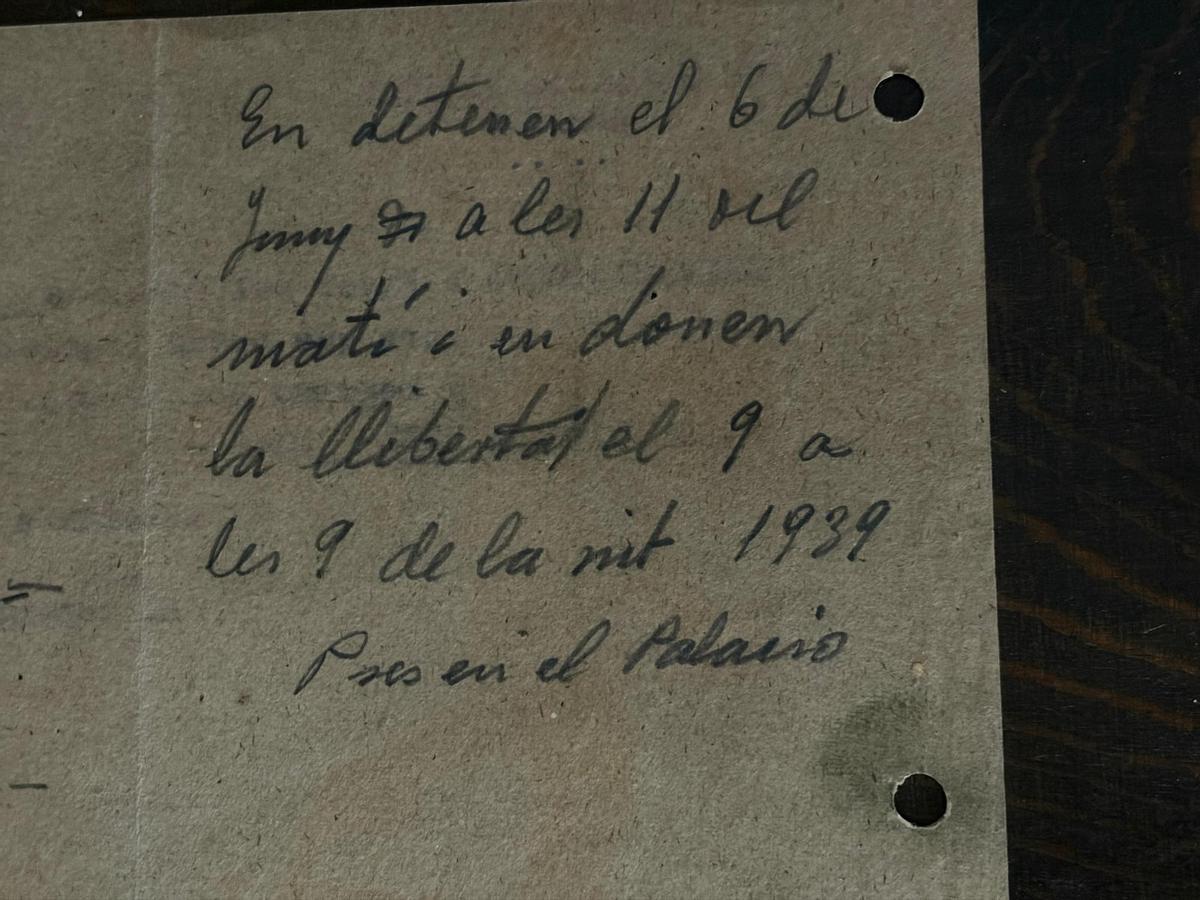 En detenen el 6 de
Juny a les 11 del
matí i en donen
la llibertat el 9 a
les 9 de la nit 1939
Pres en el Palacio